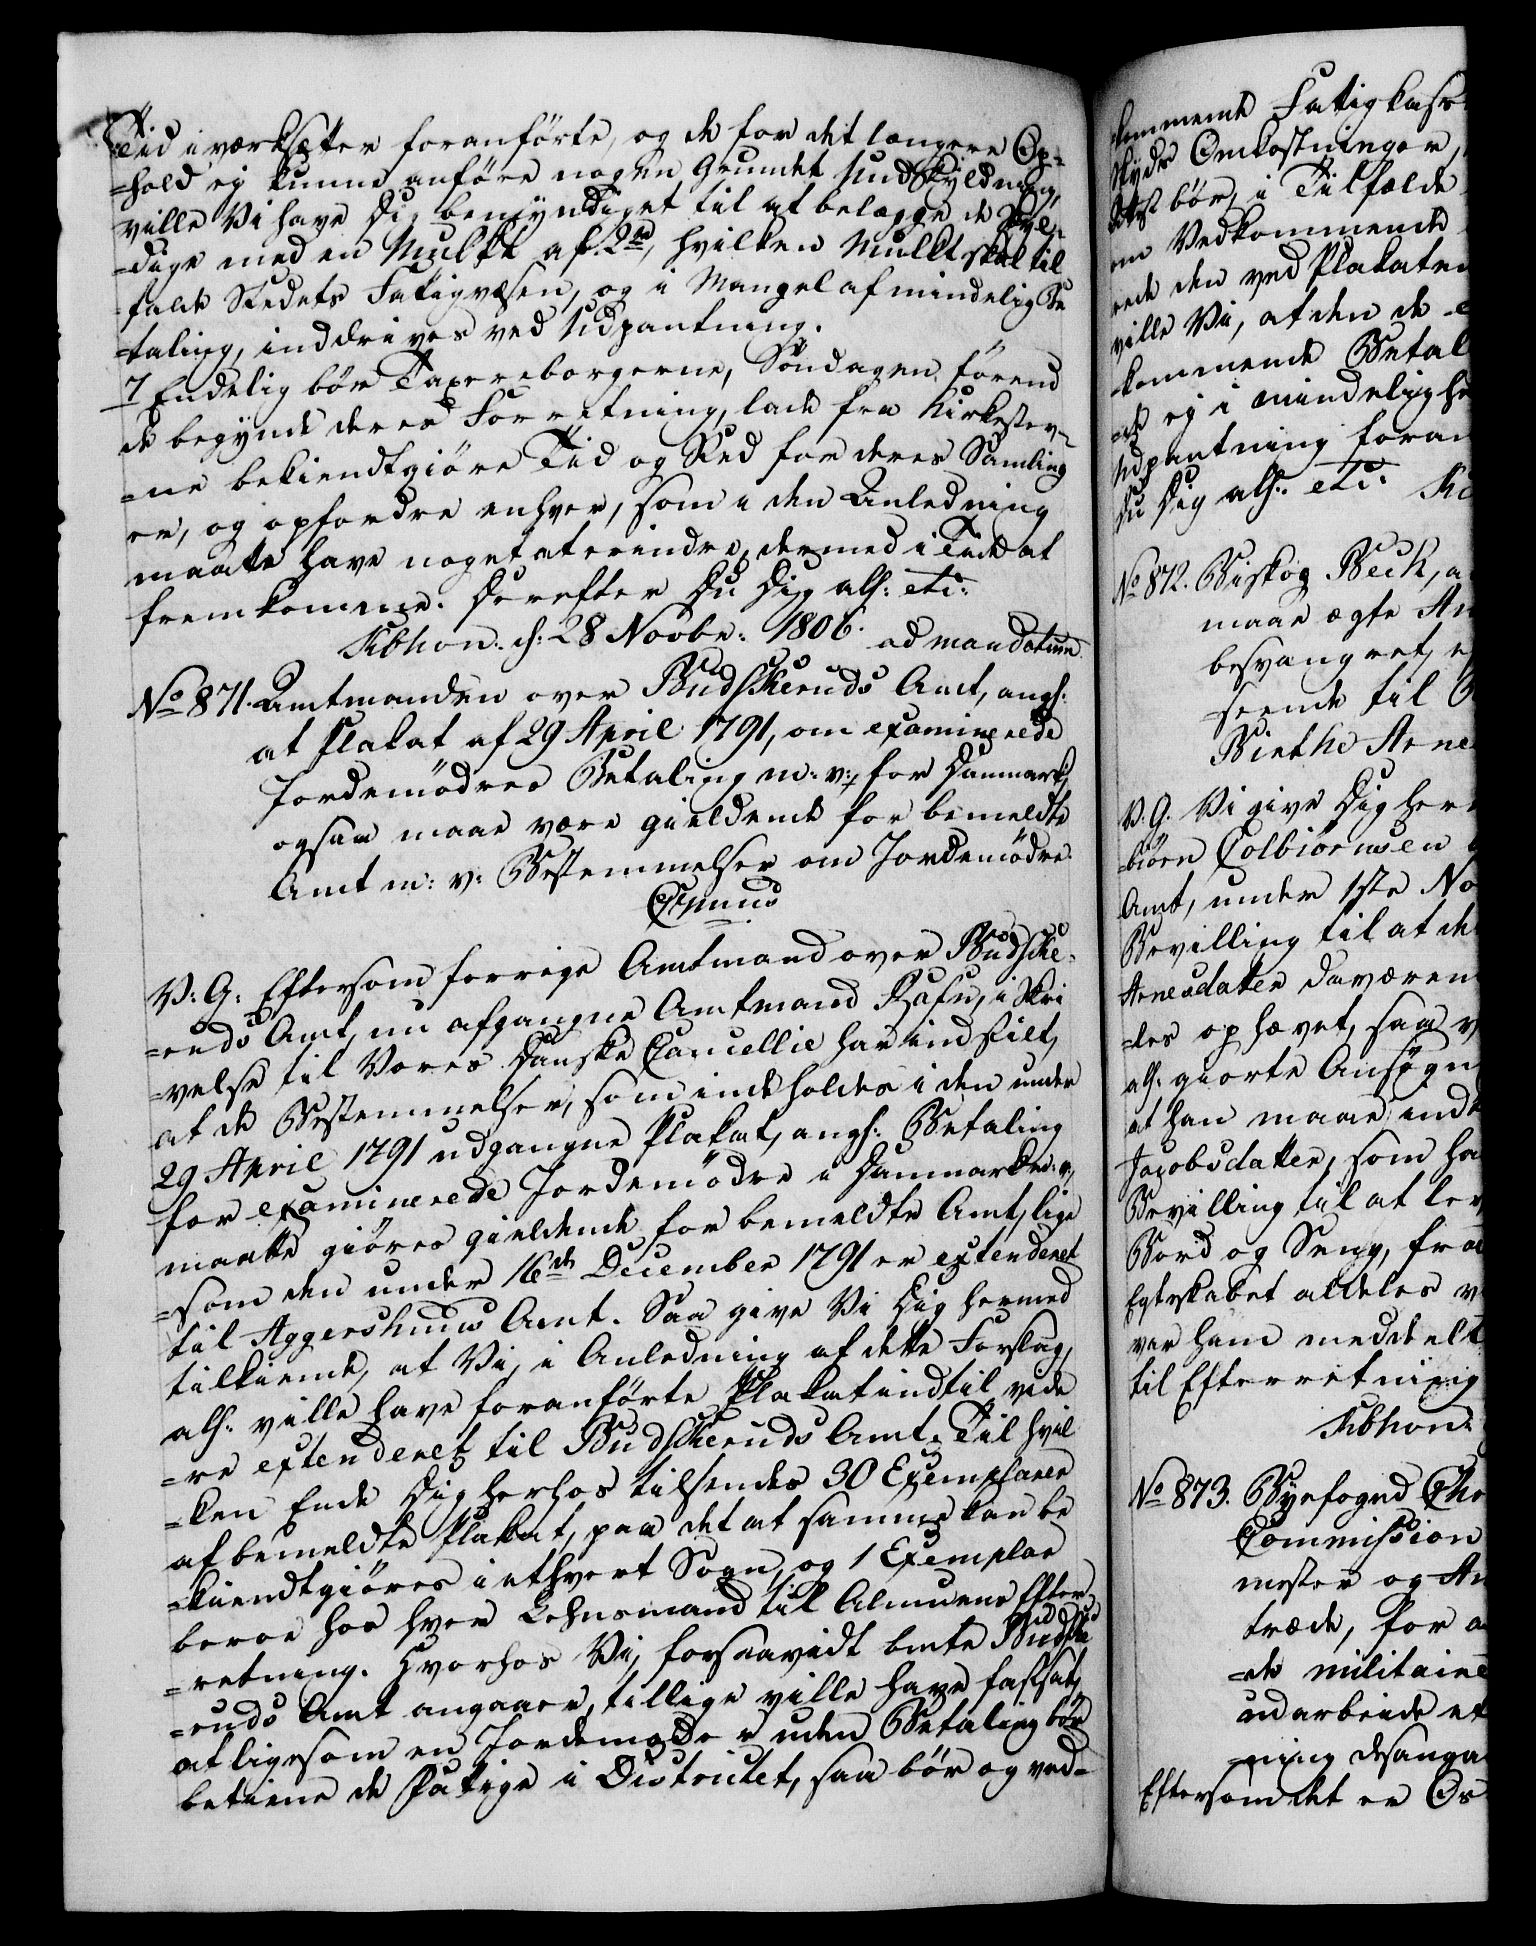 Tid iværksætter foranförte, og de for det længere Op-
=hold ej kunne anföre nogen Grundet Undskyldning,
ville Vi have Dig bemyndiget til at belægge de Skyl-
=dige med en Mulkt af 2rd, hvilken Mulkt skal til
=falde Stedets Fattigvæsen, og i Mangel af mindelig Be
=taling, inddrives ved Udpantning.
7 Endelig bör Taxereborgerne, Söndagen förend
de begynde deres Forretning, lade fra Kirkestev-
=ne bekiendtgiöre Tid og Sted for deres Samling
er, og opfordre enhver, som i den Anledning
maatte have noget at erindre, dermed i Tide at
fremkomme. Derefter Du Dig alh: etc:
Kbhvn: d: 28 Novbr: 1806. ad mandatum.
No 871. Amtmanden over Budskeruds Amt, angh:
at Plakat af 29 April 1791, om examinerede
Jordemödres Betaling m: v:, for Danmark,
ogsaa maae være gieldende for bemeldte
Amt m: v: Bestemmelser om Jordemödre.
V: G: Eftersom forrige Amtmand over Budske-
=ruds Amt, nu afgangne Amtmand Rafn, i Skri
=velse til Vores Danske Cancellie har indstilt,
at de Bestemmelser, som indeholdes i den under
29 April 1791 udgangne Plakat, angh: Betaling
for examinerede Jordemödre i Danmark m: v:,
maatte giöres gieldende for bemeldte Amt, lige
=som den under 16de December 1791 er extenderet
til Aggershuus Amt. Saa give Vi Dig hermed
tilkiende, at Vi, i Anledning af dette Forslag,
alh: ville have foranförte Plakat indtil vide
=re extenderet til Budskeruds Amt. Til hvil
=ken Ende Dig herhos tilsendes 30 Exemplarer
af bemeldte Plakat, paa det at samme kan be
=kiendtgiöres i ethvert Sogn, og 1 Exemplar
beroe hos hver Lehnsmand til Almuens Efter-
=retning. Hvorhos Vi, forsaavidt bmte Budske
=ruds Amt angaaer, tillige ville have fastsat,
at ligesom en Jordemoder uden Betaling bör
betiene de Fattige i Districtet, saa bör og ved-
kommende Fatigkasse
skyde Omkostninger,
bör, i Tilfælde
om Vedkommende
rede den ved Plakaten
ville Vi, at den de
kommende Betal
=de ej i Mindelighe
Udpantning foran
Du Dig alh: etc: Kb
No 872. Biskop Bech, a
maae ægte An
besvangret, e
seende til
Birthe Arne
V. G. Vi give Dig her
biörn Colbiörnsen
Amt, under 1ste No
Bevilling til at de
Arnesdatter daværen
=des ophævet, saa v
alh: giorte Ansögn
at han maae indt
Jacobsdatter, som ha
Bevilling til at lev
Bord og Seng, fra
Egteskabet aldeles
var ham meddelt
til Efterretning
Kbhvn:
No 873. Byefoged Cho
Commission
mester og An
træde, for a
=de militaire
udarbeide et
=ning desanga
Eftersom det er Os